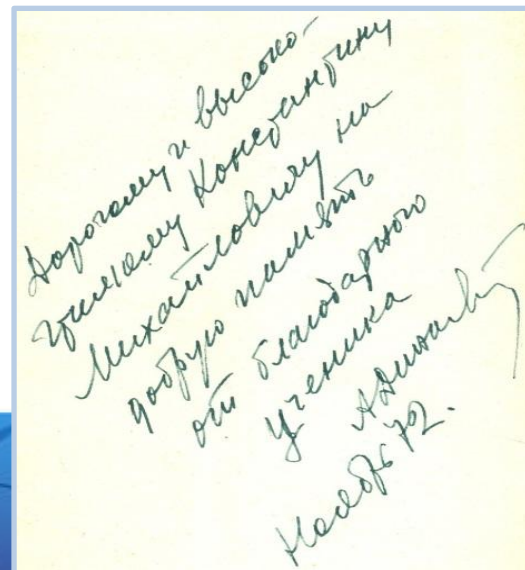 Дорогому и высоко-
чтимому Константину
Михайловичу на
добрую память
от благодарного
ученика
Ноябрь 72.